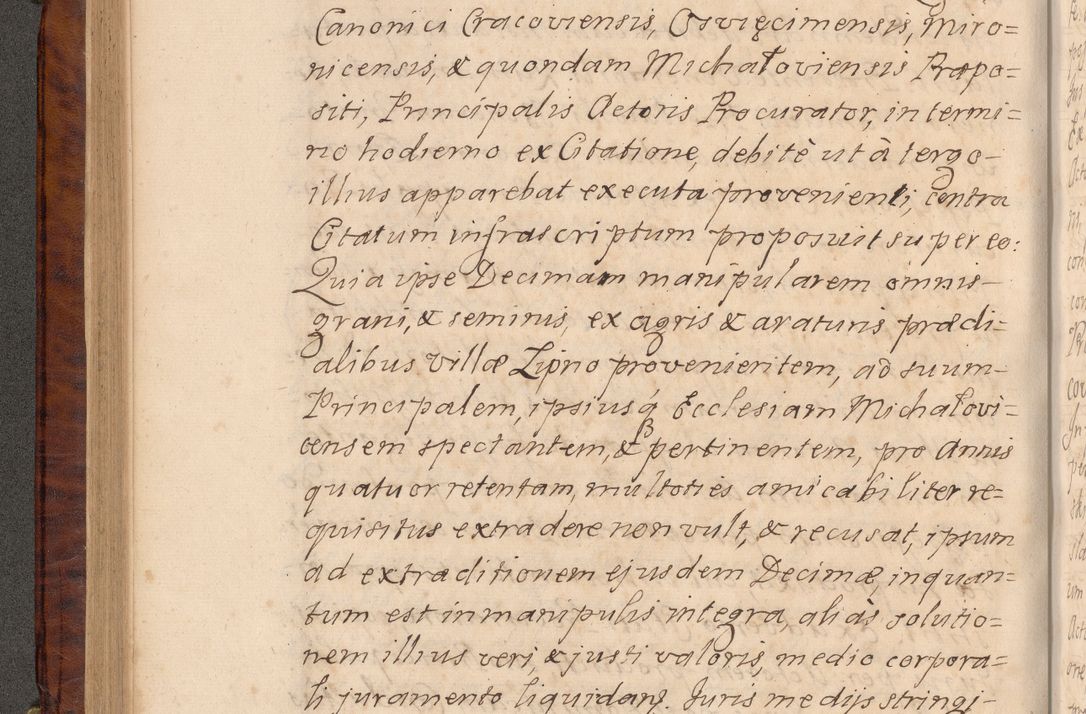 Canonici Cracoviensis, Osvięcimensis, Miro=
nicensis, & quondam Michałoviensis Præpo=
siti, Principalis Actoris Procurator, in termi=
no hodierno ex Citatione, debitè ut à tergo
illius apparebat executa provenienti, contra
Citatum infrascriptum proposuit super eo:
Quia ipse Decimam manipularem omnis
grani, & seminis, ex agris & araturis prædi=
alibus villæ Lipno provenientem, ad suum
Principalem, ipsiusq́ Ecclesiam Michałovi=
censem spectantem, & pertinentem, pro Annis
quatuor retentam, multoties amicabiliter re=
quisitus extradere non vult, & recusat, ipsum
ad extraditionem ejusdem Decimæ, inquan=
tum est in manipulis integra, aliàs solutio=
nem illius veri, & justi valoris, medio corpora=
li juramento liquidanꝗ. Juris medijs stringi-